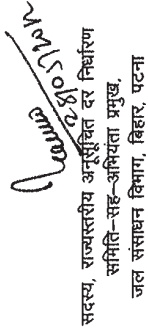 28/05/2012
सदस्य, राज्यस्तरीय अनुसूचित दर निर्धारण
समिति–सह–अभियंता प्रमुख,
जल संसाधन विभाग, बिहार, पटना